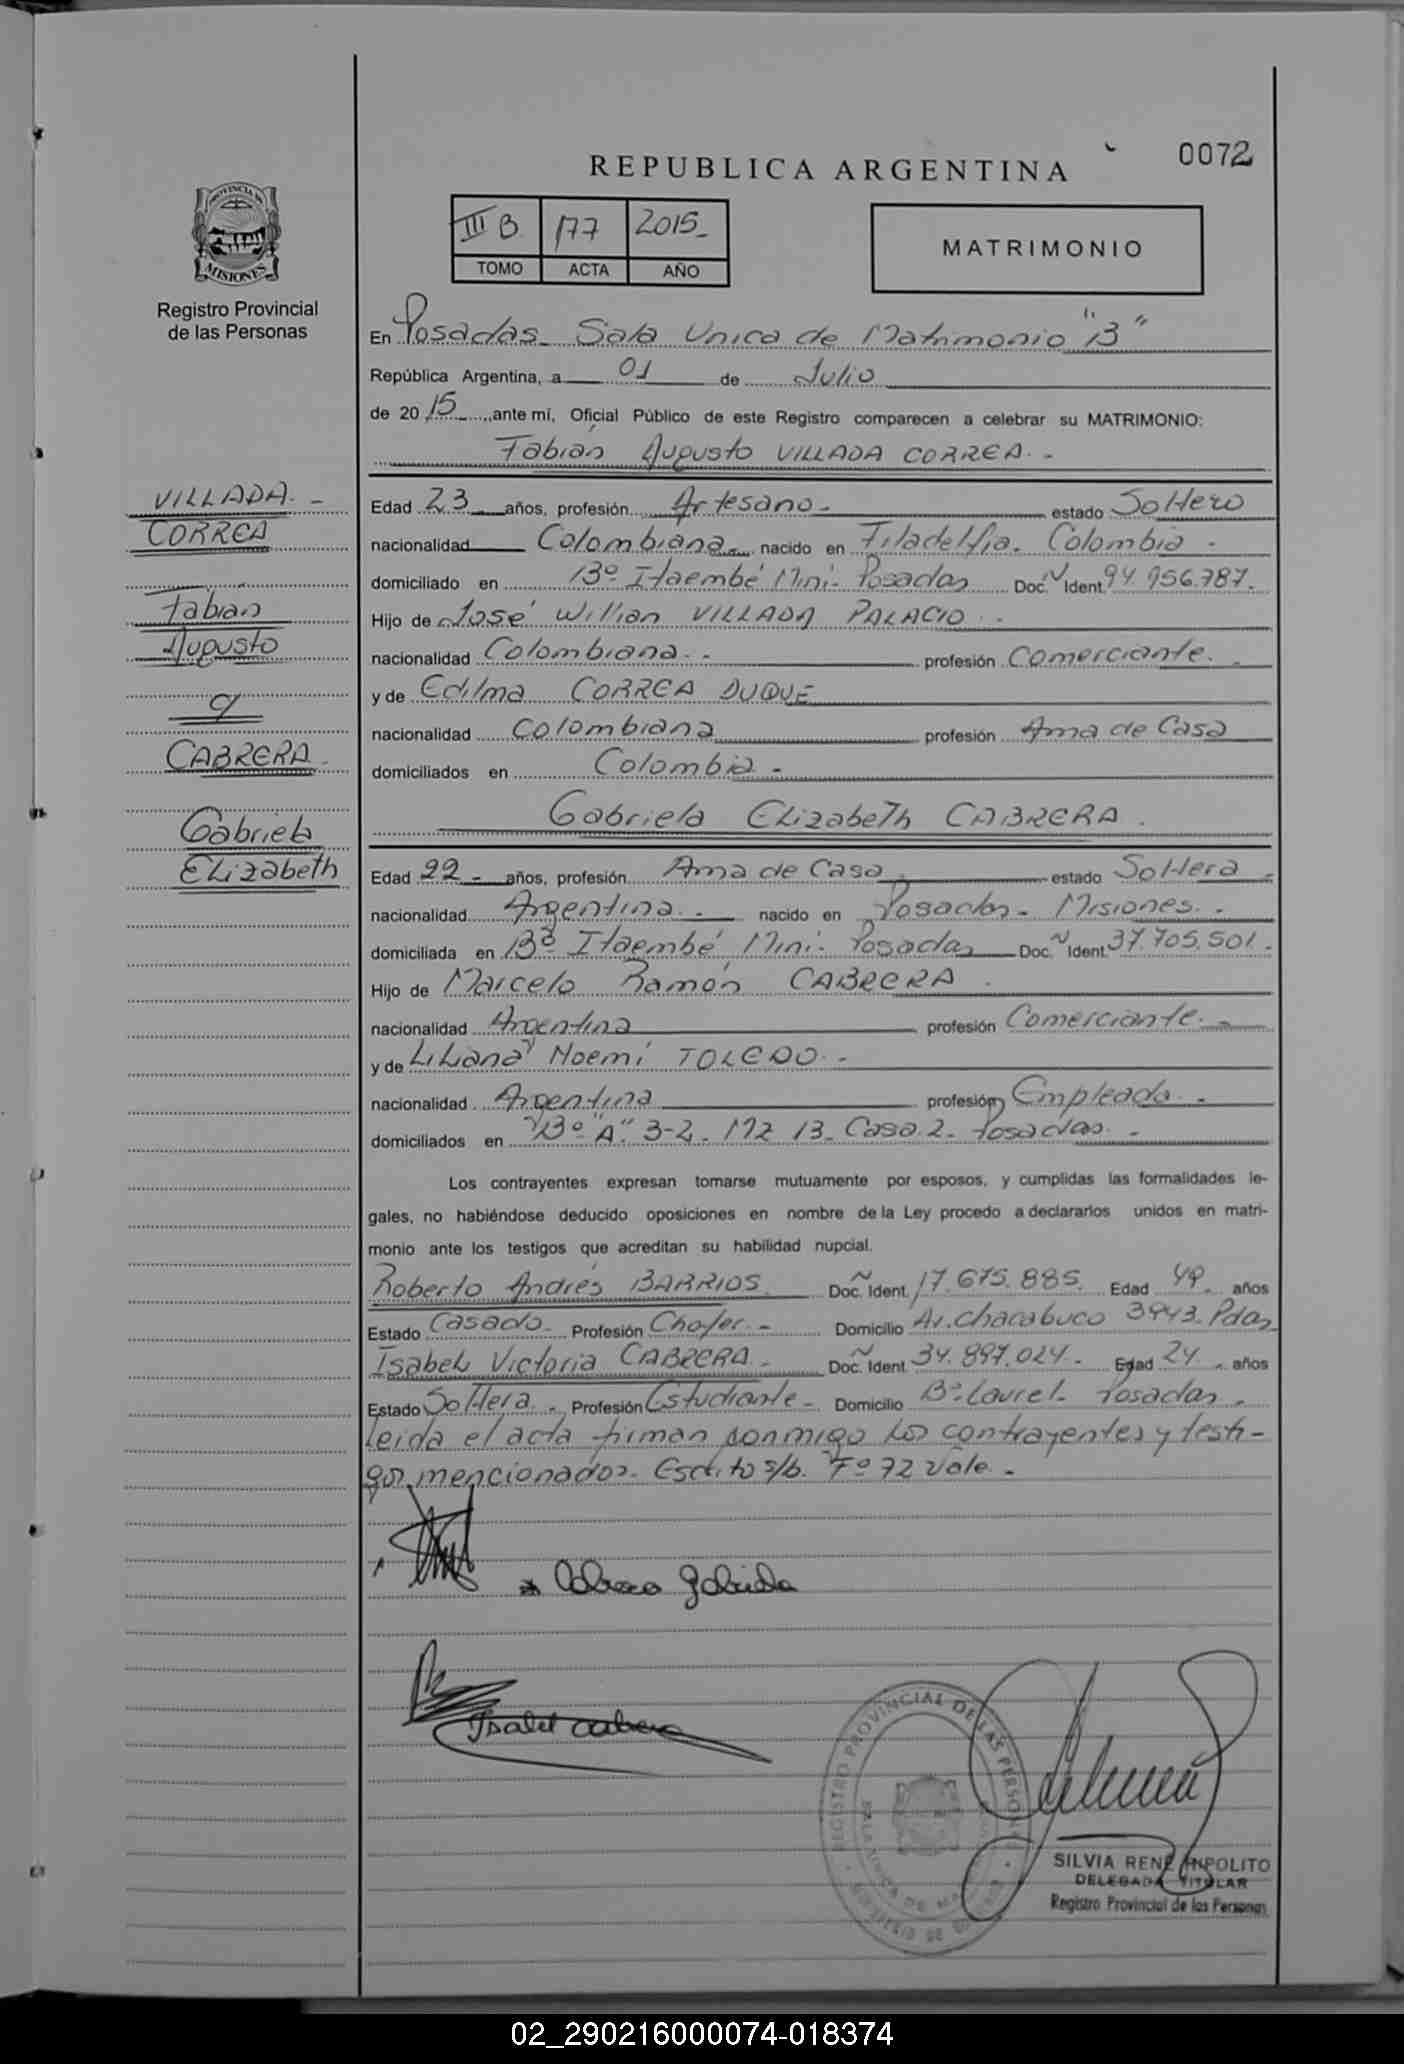 0072
REPUBLICA ARGENTINA
III B. 177 2015_
TOMO ACTA AÑO
MATRIMONIO
PROVINCIA DE
MISIONES
Registro Provincial
de las Personas
En Posadas_ Sala Unica de Matrimonio "B"
República Argentina, a 01 de Julio
de 20 15 ,ante mí, Oficial Público de este Registro comparecen a celebrar su MATRIMONIO:
Fabián Augusto VILLADA CORREA. -
VILLADA. -
CORREA
Fabian
Augusto
c/
CABRERA.
Gabriela
Elizabeth
Edad 23 años, profesión Artesano. estado Soltero
nacionalidad Colombiana nacido en Filadelfia. Colombia -
domiciliado en Bº Itaembé Mini- Posadas Doc. Ñ Ident. 94.956.787.
Hijo de José Willian VILLADA PALACIO. -
nacionalidad Colombiana. - profesión Comerciante.
y de Edilma CORREA DUQUE
nacionalidad Colombiana profesión Ama de Casa
domiciliados en Colombia -
Gabriela Elizabeth CABRERA.
Edad 22 - años, profesión Ama de Casa estado Soltera -
nacionalidad Argentina. - nacido en Posadas- Misiones. -
domiciliada en Bº Itaembé Mini- Posadas Doc. Ñ Ident. 37.705.501.
Hijo de Marcelo Ramón CABRERA.
nacionalidad Argentina profesión Comerciante. -
y de Liliana Noemí TOLEDO. -
nacionalidad Argentina profesión Empleada. -
domiciliados en Bº "A" 3-2. Mz 13. Casa 2. Posadas. -
Los contrayentes expresan tomarse mutuamente por esposos, y cumplidas las formalidades le-
gales, no habiéndose deducido oposiciones en nombre de la Ley procedo a declararlos unidos en matri-
monio ante los testigos que acreditan su habilidad nupcial.
Roberto Andrés BARRIOS. Doc. Ñ Ident. 17.675.885. Edad 49. años
Estado Casado- Profesión Chofer. - Domicilio Av. Chacabuco 3943. Pdas
Isabel Victoria CABRERA. - Doc. Ñ Ident. 34.897.024- Edad 24 años
Estado Soltera. - Profesión Estudiante- Domicilio Bº Laurel- Posadas.
Leida el acta firman conmigo los contrayentes y testi-
gos mencionados. Escrito s/b. "Fº 72 Vale. -
Cabrera Gabriela
Isabel Cabrera
REGISTRO PROVINCIAL DE LAS PERSONAS
SILVIA RENE HIPOLITO
DELEGADA TITULAR
Registro Provincial de las Personas
02_290216000074-018374